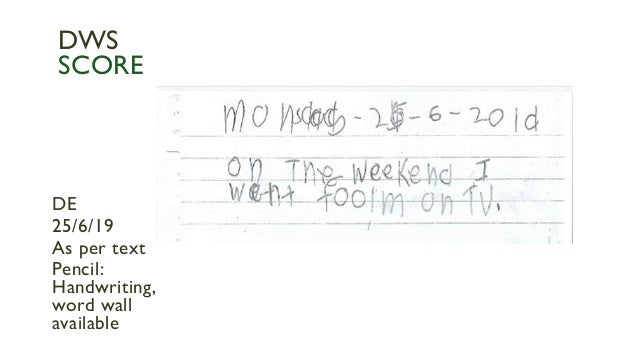 DWS
SCORE
MOnsday-25-6-201d
On The weekend I
went toolm on TV.
DE
25/6/19
As per text
Pencil:
Handwriting,
word wall
available